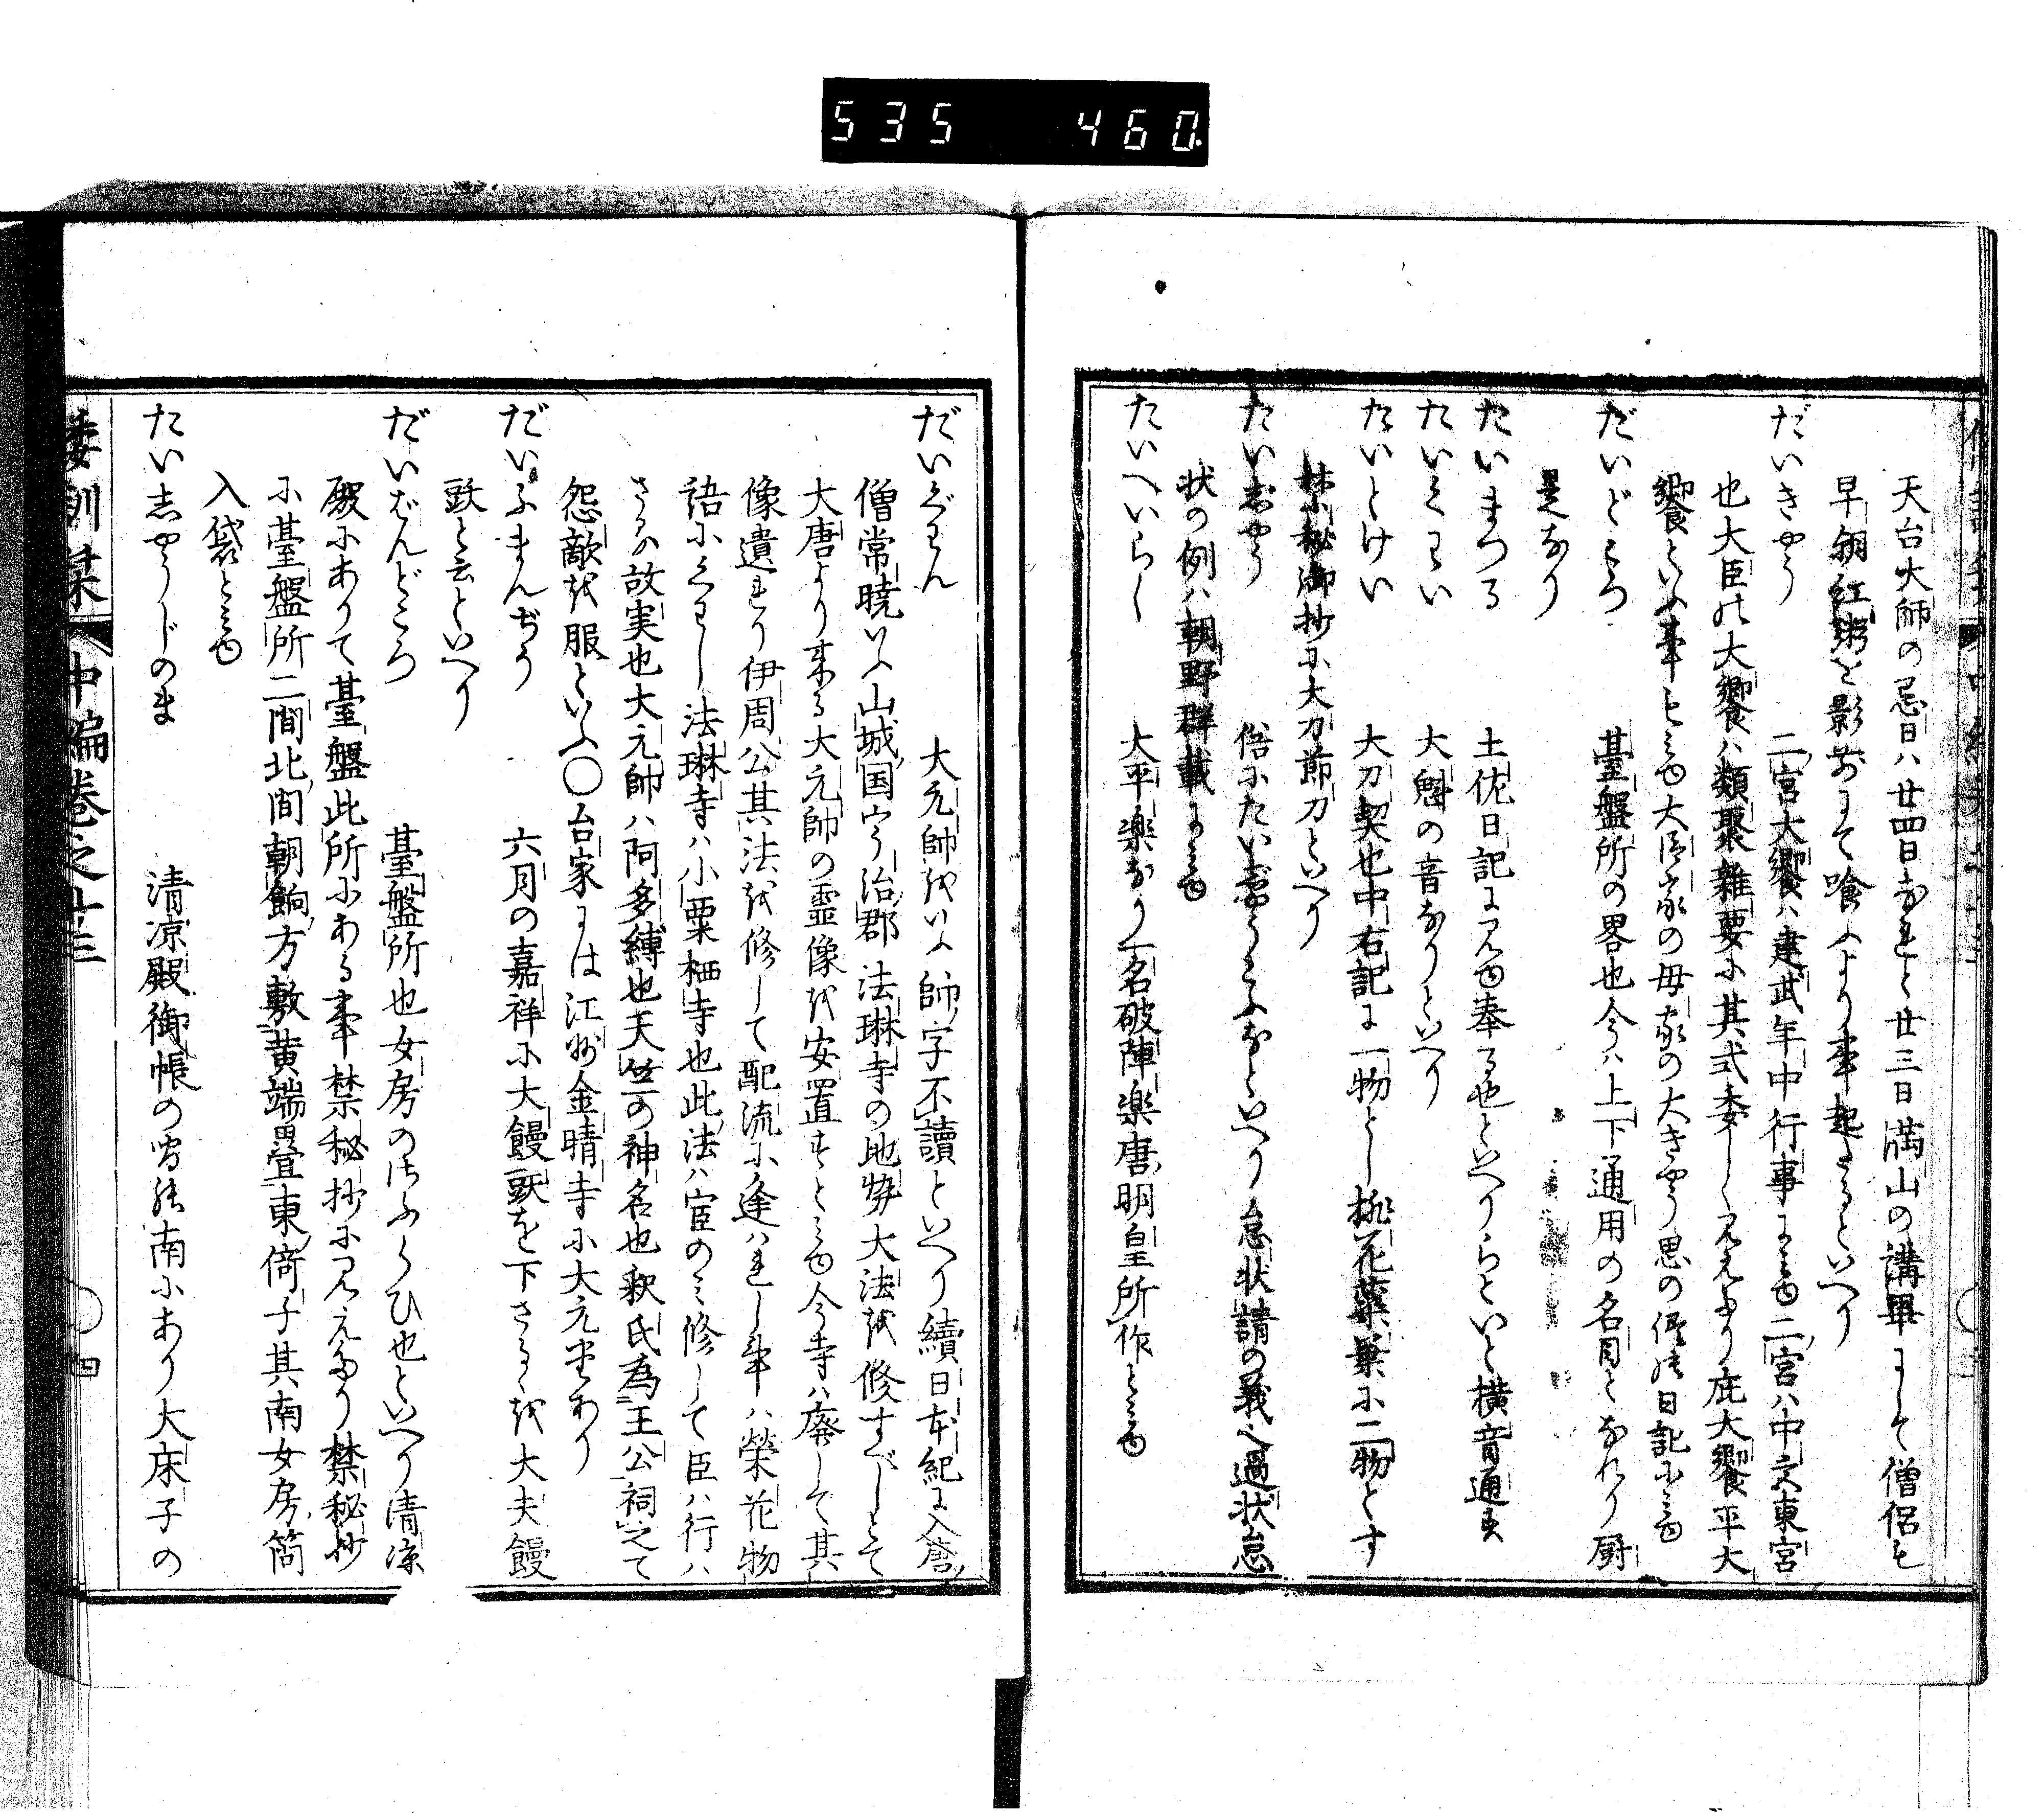 535 460
天台大師の忌日ハ廿四日なれと廿三日満山の講畢りて僧侶も
早朝紅粥を影前にて喰ふより事起さるといへり
だいきやう 二宮大饗ハ建武年中行事にみゆ二宮ハ中宮東宮
也大臣の大饗ハ類聚雑要に其式委しく見えたり庇大饗平大
饗といふ事もみゆ大臣家の母家の大きやう思の儘の日記にみゆ
だいどころ 臺盤所の畧也今ハ上下通用の名目となれり厨
是なり
たいまつる 土佐日記に見ゆ奉る也といへりらといと横音通へり
たいくわい 大魁の音なりといへり
たいとけい 大刀契也中右記に一物とし桃花蘂葉に二物とす
禁秘御抄に大刀節刀といへり
たいじやう 俗にたいじやうこふなといへり怠状請の義也過状怠
状の例ハ朝野群載にみゆ
たいへいらく 大平楽なり一名破陣楽唐明皇所作とみゆ
だいぐわん 大元帥をいふ帥字不讀といへり續日本紀に入唐
僧常暁いふ山城国宇治郡法琳寺の地勢大法を修すべしとて
大唐より来る大元帥の霊像を安置すとみゆ今寺ハ廃して其
像遺れり伊周公其法を修して配流に逢はれし事ハ榮花物
語にくわし法琳寺ハ小栗栖寺也此法ハ宦のミ修して臣ハ行ハ
さるの故実也大元帥ハ阿多縛也天竺の神名也釈氏為王公祠之て
怨敵を服といふ〇台家には江州金晴寺に大元堂あり
だいふまんぢう 六月の嘉祥に大饅頭を下さるゝを大夫饅
頭と云といへり
だいばんどころ 臺盤所也女房のさふらひ也といへり清凉
殿にありて臺盤此所にある事禁秘抄に見えたり禁秘抄
に臺盤所二間北間朝餉方敷黄端畳東倚子其南女房簡
入袋とみゆ
たい志やうじのま 清凉殿御帳の間の南にあり大床子の
倭訓栞 中編巻之十三 四